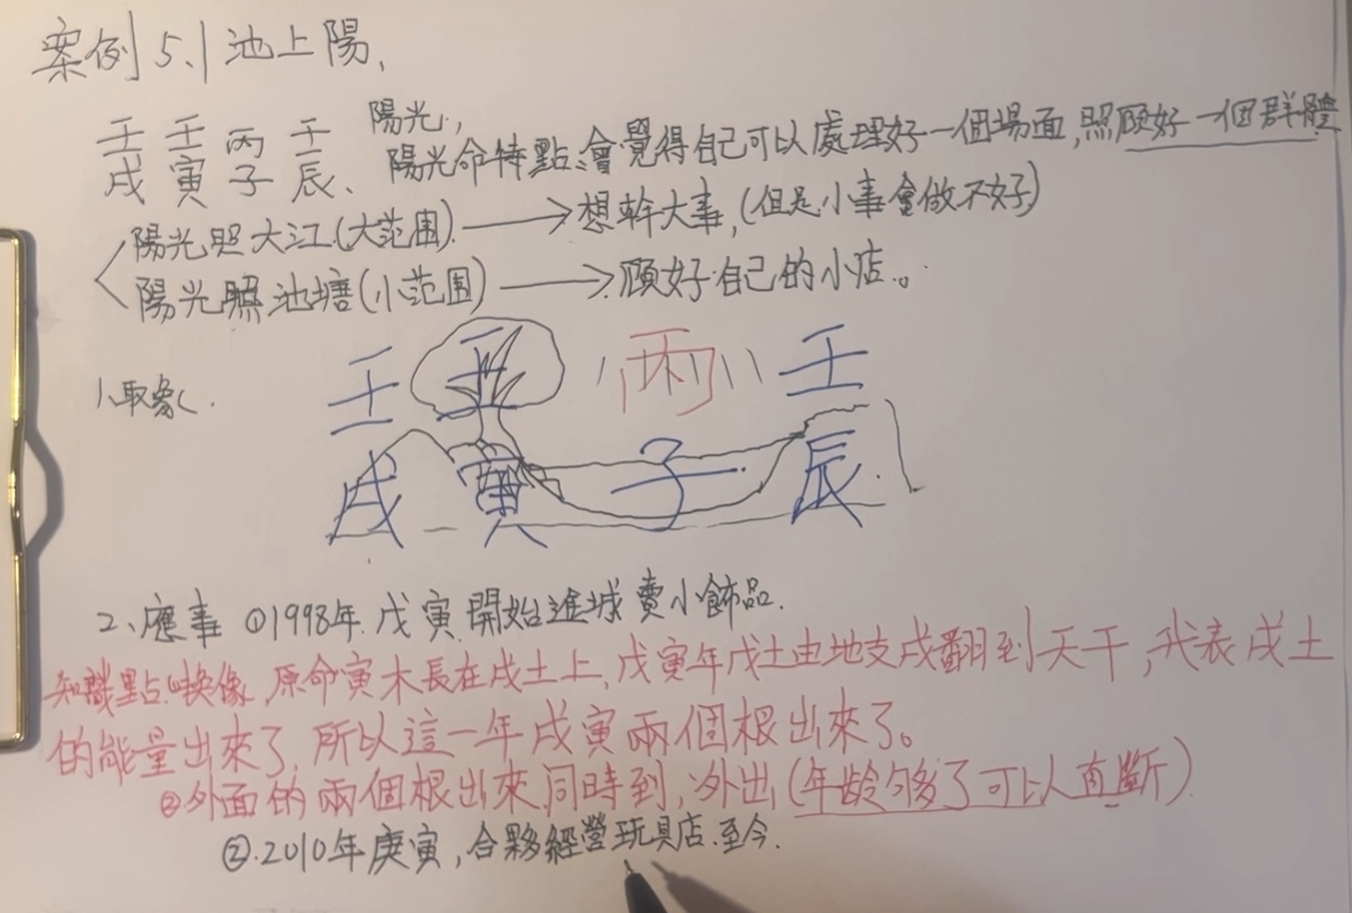 案例5.1池上陽、
壬 壬 丙 壬 陽光,
戌 寅 子 辰、 陽光命特點:會覺得自己可以處理好一個場面,照顾好一個群體
陽光照大江(大范围)→想幹大事,(但是小事會做不好)
陽光照池塘(小范围)→顾好自己的小店。
壬 壬 丙 壬
1、取象
戌 寅 子 辰
2、應事 ①1998年戊寅開始進城賣小飾品.
知識點:⑴换像,原命寅木長在戌土上,戊寅年戊土由地支戌翻到天干,代表戌土
的能量出來了,所以這一年戊寅兩個根出來了。
②外面的兩個根出來同時到,外出(年龄够了可以直斷)
②.2010年庚寅,合夥經營玩具店.至今.